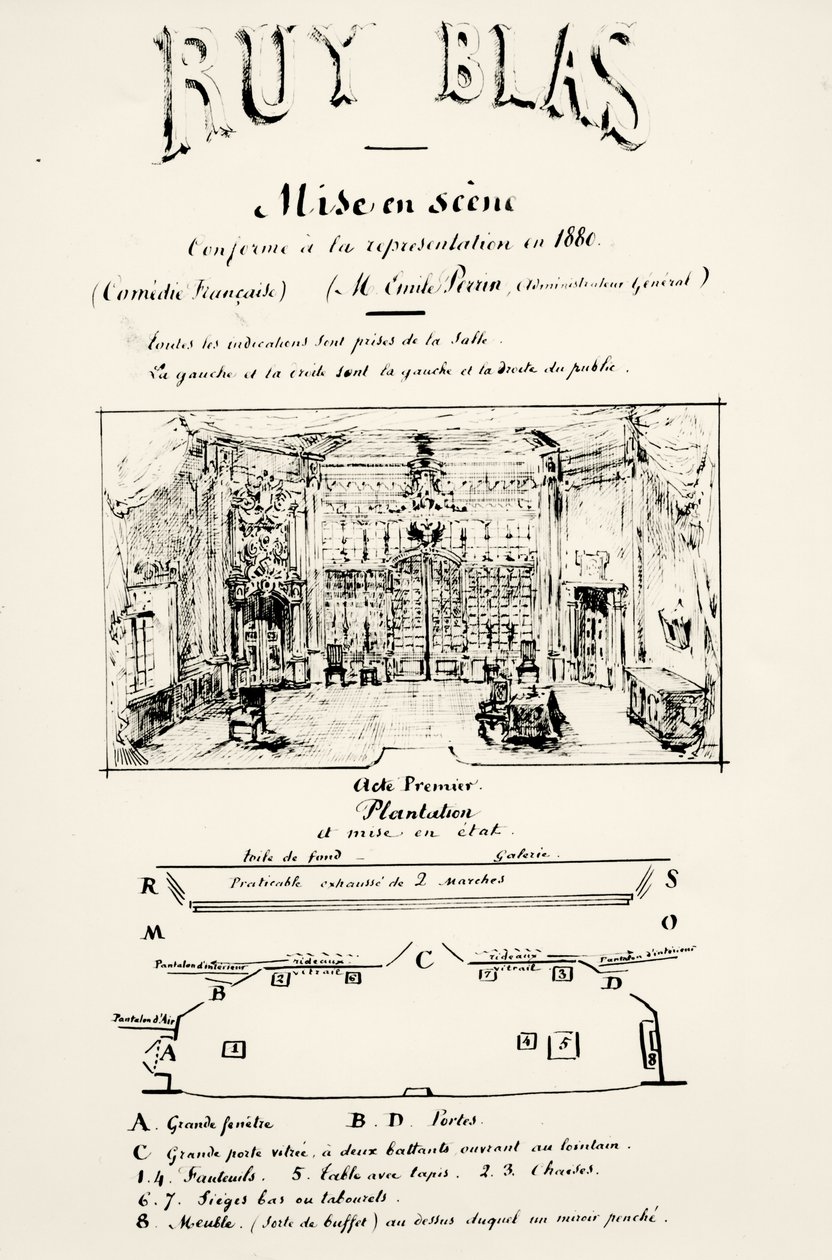 RUY BLAS
Mise en scène
Conforme à la représentation en 1880.
(Comédie Française) (M. Emile Perrin, Administrateur Général)
Toutes les indications sont prises de la Salle.
La gauche et la droite sont la gauche et la droite du public.
Acte Premier.
Plantation
et mise en état.
toile de fond _ Galerie.
R Praticable exhaussé de 2 Marches S
M O
Pantalon d'intérieur rideaux C rideaux Pantalon d'intérieur
vitrail vitrail
B 2 6 7 3 D
Pantalon d'Air
A 1 4 5 8
A. Grande fenêtre B. D. Portes.
C Grande porte vitrée, à deux battants ouvrant au lointain.
1.4. Fauteuils. 5. table avec tapis. 2. 3. Chaises.
6. 7. Sièges bas ou tabourets.
8. Meuble. (Sorte de buffet) au dessus duquel un miroir penché.